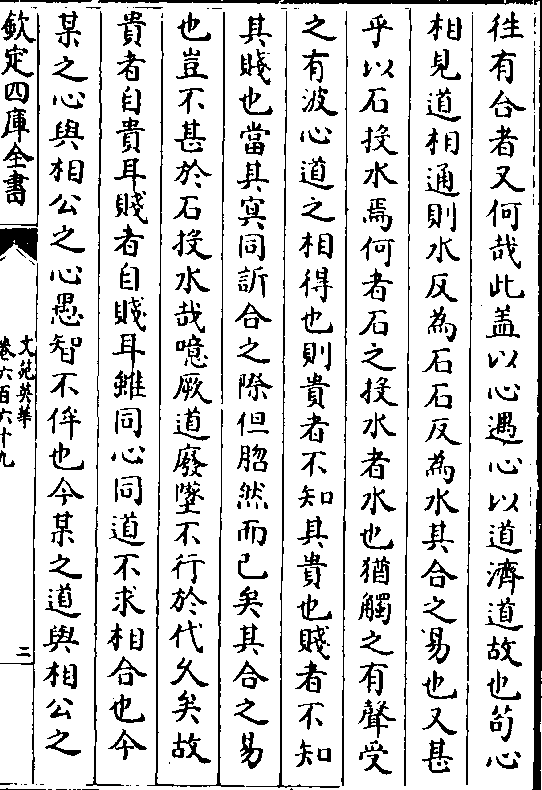 徃有合者又何哉此盖以心遇心以道濟道故也茍心
相見道相通則水反為石石反為水其合之易也又甚
乎以石投水焉何者石之投水者水也猶觸之有聲受
之有波心道之相得也則貴者不知其貴也賤者不知
其賤也當其冥同訢合之際但脗然而已矣其合之易
也豈不甚於石投水哉噫厥道廢墜不行於代久矣故
貴者自貴耳賤者自賤耳雖同心同道不求相合也今
某之心與相公之心愚智不侔也今某之道與相公之
欽定四庫全書
文苑英華
卷六百六十九
二